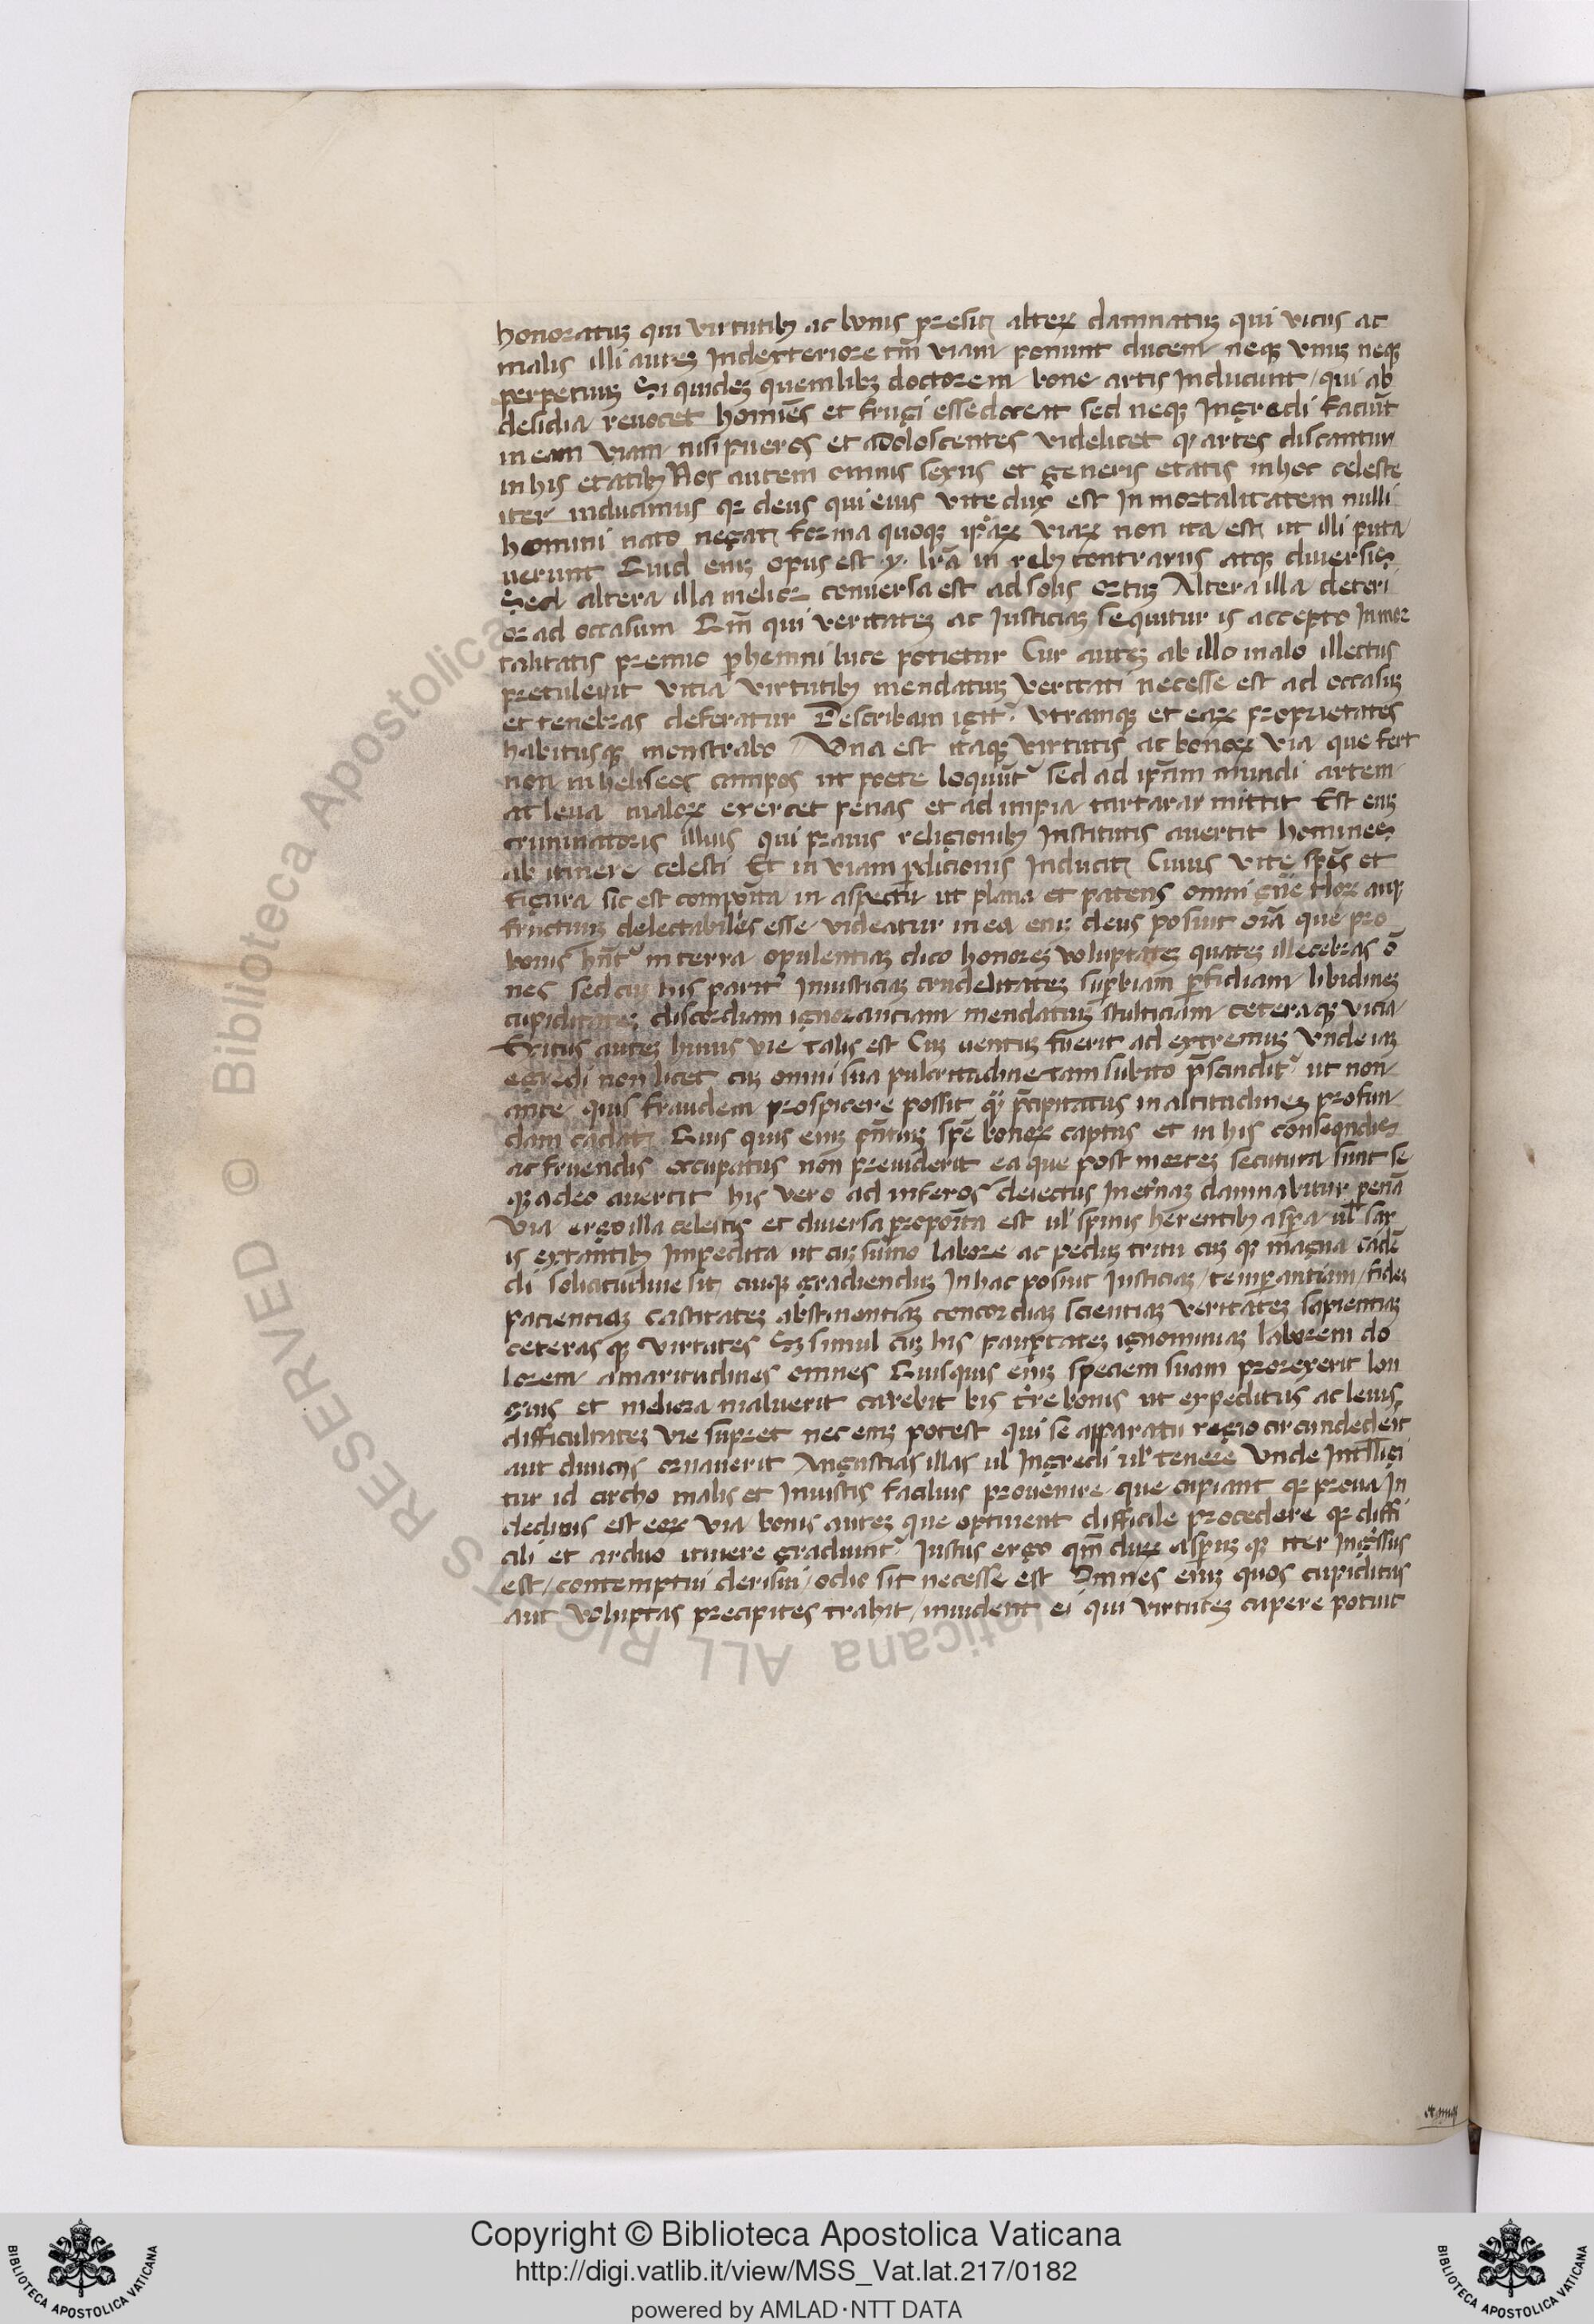 honoratuʒ qui virtutibꝫ ac bonis presit alteꝝ damnatuʒ qui viciis ac
malis illi auteʒ In dexteriore tm̄ viam ponunt ducem neqꝫ vnuʒ neqꝫ
perpetuuʒ Si quideʒ quemlibꝫ doctorem bone artis Inducunt / qui ab
desidia revocet homīes et frugi esse doceat sed neqꝫ Ingredi faciūt
in eam viam nisi pueros et adoloscentes videlicet qꝫ artes discantur
in his etatibꝫ Nos autem omnis sexus et generis etatis in hoc celeste
iter inducimus qꝛ deus qui eius vite dux est Inmortalitatem nulli
homini nato negat forma quoqꝫ ip̄aꝝ viaꝝ non ita est ut illi puta
uerunt Quid eniʒ opus est .y. lr̄a in rebꝫ contrariis atqꝫ diversis
Sed altera illa melior conversa est ad solis ortuʒ Altera illa deteri
or ad occasum Qm̄ qui veritateʒ ac Iusticiaʒ sequitur is accepto Inmor
talitatis premio ꝑhemni luce potietur Cur auteʒ ab illo malo illectus
pretulerit vitia virtutibꝫ mendatiuʒ veritati necesse est ad occasuʒ
et tenebras deferatur Describam igit᷑ utramqꝫ et eaꝝ proprietates
habitusqꝫ monstrabo / Vna est itaqꝫ virtutis ac bonoꝝ via que fert
non in helisees campos ut poete loquūt᷑ sed ad ip̄am mundi artem
at leva maloꝝ exercet penas et ad impia tartara mittit Est eniʒ
criminatoris illius qui pravis religionibꝫ Institutis avertit homines
ab itinere celesti Et in viam ꝑdicionis Inducit Cuius vite spēs et
figura sic est compoīta in aspectū ut plana et patens omni gn̄e floꝝ atqꝫ
fructuuʒ delectabiles esse videatur in ea eniʒ deus posuit oīa que pro
bonis hn̄t᷑ in terra opulentiaʒ dico honoreʒ voluptateʒ quateʒ illecebras ō
nes sed cuʒ his parit᷑ Iniusticiaʒ crudelitateʒ suꝑbiam ꝑfidiam libidineʒ
cupiditateʒ discordiam ignorantiam mendatiuʒ stulticiam ceteraqꝫ vicia
Exitus auteʒ huius vie talis est Cuʒ uentuʒ fuerit ad extremuʒ vnde iaʒ
egredi non licet cuʒ omni sua pulcritudine tam subito p̄scindit᷑ ut non
ante quis fraudem prospicere possit qᷓ p̄cipitatus in altitudineʒ profun
dam cadat Quis quis eniʒ pn̄tiuʒ spē bonoꝝ captus et in his conseqndis
ac fruendis occupatus non previderit ea que post morteʒ secutura sunt se
qꝫ a deo avertit his vero ad inferos deiectus In et᷑naʒ damnabitur penā
Via ergo illa celestis et diversa propoīta est ul᷑ spinis herentibꝫ aspa ul᷑ sax
is extantibꝫ Impedita ut cuʒ sūmo labore ac peduʒ tritu cuʒ qꝫ magna cadē
di solicitudine sit cuiqꝫ gradienduʒ In hac posuit Iusticiaʒ / temꝑantiam / fideʒ
pacientiaʒ castitateʒ abstinentiaʒ concordiaʒ scientiaʒ veritateʒ sapientiaʒ
ceteras qꝫ virtutes Sʒ simul cuʒ his pauꝑtateʒ ignominiaʒ laborem do
lorem amaritudines omnes Quisquis eniʒ speciem suam prorexerit lon
gius et meliora maluerit carebit his tr̄re bonis ut expeditus ac levis
difficultateʒ vie suꝑet nec eniʒ potest qui se apparatu regio circundedeīt
aut divitiis oravaverit Angustias illas ul᷑ Ingredi ul᷑ tenere Vnde Intl̄ligi
tur id circho malis et Iniustis facilius provenire que cupiant qꝛ prona In
declivis est eoꝝ via bonis auteʒ que optinent difficile procedere qꝛ diffi
cili et arduo itinere gradiunt᷑ Iustus ergo qm̄ duꝝ asꝑuʒ qꝫ iter Ingr̄ssus
est / contemptui derisui / odio sit necesse est Omnes eniʒ quos cupiditas
aut voluptas precipites trahit / invident ei qui virtuteʒ capere potuit
© Biblioteca Apostolica Vaticana ALL RIGHTS RESERVED
Copyright © Biblioteca Apostolica Vaticana
http://digi.vatlib.it/view/MSS_Vat.lat.217/0182
powered by AMLAD·NTT DATA
BIBLIOTECA APOSTOLICA VATICANA
BIBLIOTECA APOSTOLICA VATICANA